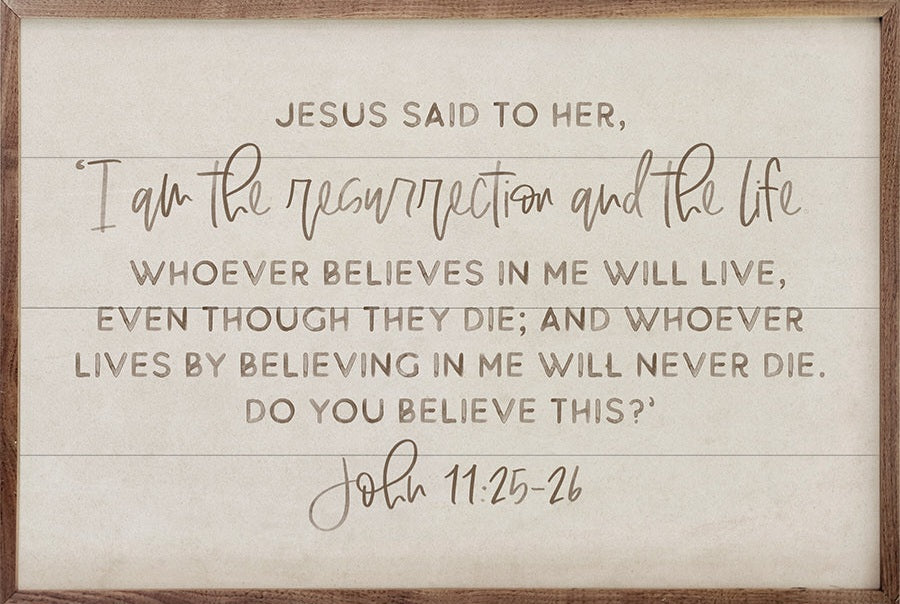 JESUS SAID TO HER,
‘I am the resurrection and the life.
WHOEVER BELIEVES IN ME WILL LIVE,
EVEN THOUGH THEY DIE; AND WHOEVER
LIVES BY BELIEVING IN ME WILL NEVER DIE.
DO YOU BELIEVE THIS?’
John 11:25-26